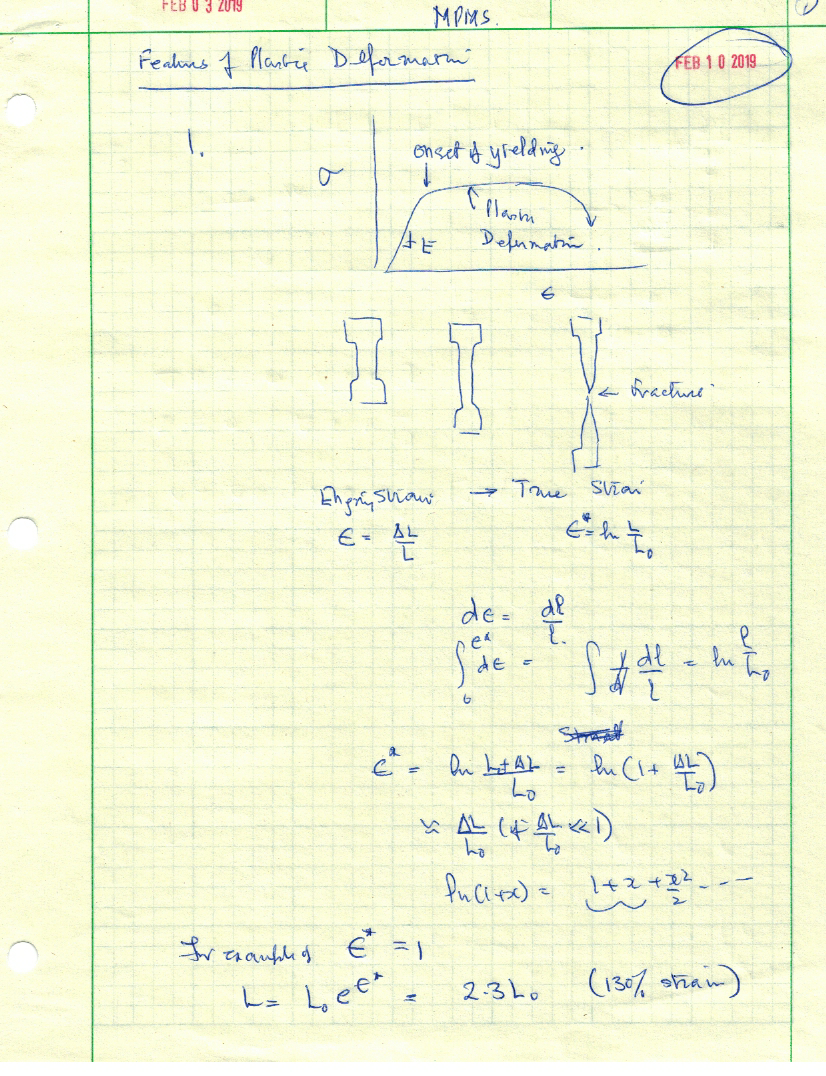 FEB 0 3 2019
MPMS.
Features of Plastic Deformation
FEB 1 0 2019
1.
onset of yielding.
σ
Plastic
Deformation.
E
ε
← Fracture
Strain → True Strain
ε = ΔL/L
ε* = ln L/L₀
dε = dl/l.
∫₀^ε* dε = ∫ dl/l = ln l/L₀
ε* = ln (L₀+ΔL)/L₀ = ln(1 + ΔL/L₀)
≈ ΔL/L₀ (if ΔL/L₀ << 1)
ln(1+x) = 1 + x + x²/2 - - -
For example if ε* = 1
L = L₀ e^ε* = 2.3 L₀ (130% strain)